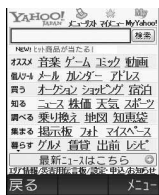 YAHOO! JAPAN メニューリスト マイメニュー My Yahoo!
検索
NEW! ヒット商品が当たる!
オススメ 音楽 ゲーム コミック 動画
個人ツール メール カレンダー アドレス
買う オークション ショッピング 宿泊
知る ニュース 株価 天気 スポーツ
調べる 乗り換え 地図 知恵袋
集まる 掲示板 フォト マイスペース
暮らす グルメ 賃貸 出前 レシピ
最新ニュースはこちら
戻る メニュー